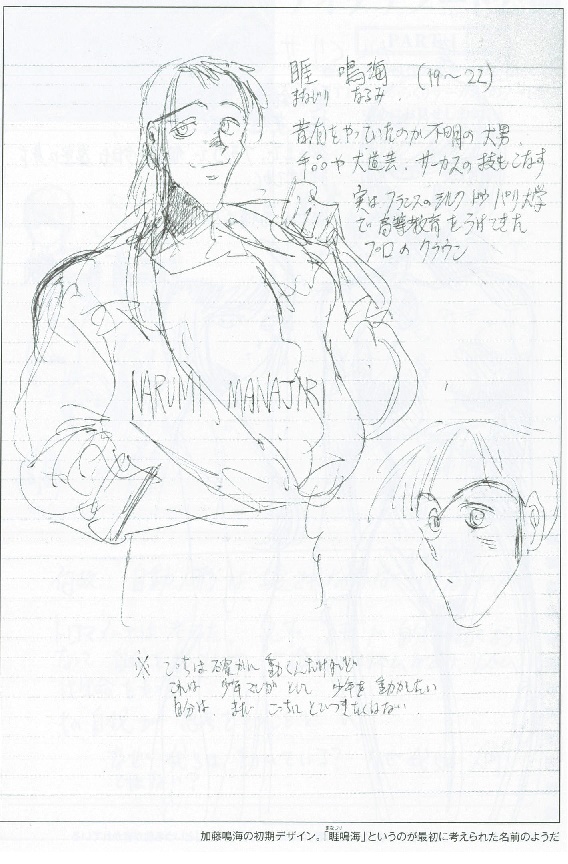 睚 鳴海 (19〜22)
まなじり なるみ.
昔何をやっていたのか不明の大男.
手品や大道芸、サーカスの技もこなす
実はフランスのシルク ドゥ パリ大学
で高等教育をうけてきた
プロのクラウン
NARUMI MANAJIRI
※ こっちは確かに動くんだけれど
これは 少年マンガとして 少年を動かしたい
自分は、まだ こっちに とびつきたくはない.
まなじり
加藤鳴海の初期デザイン。「睚鳴海」というのが最初に考えられた名前のようだ